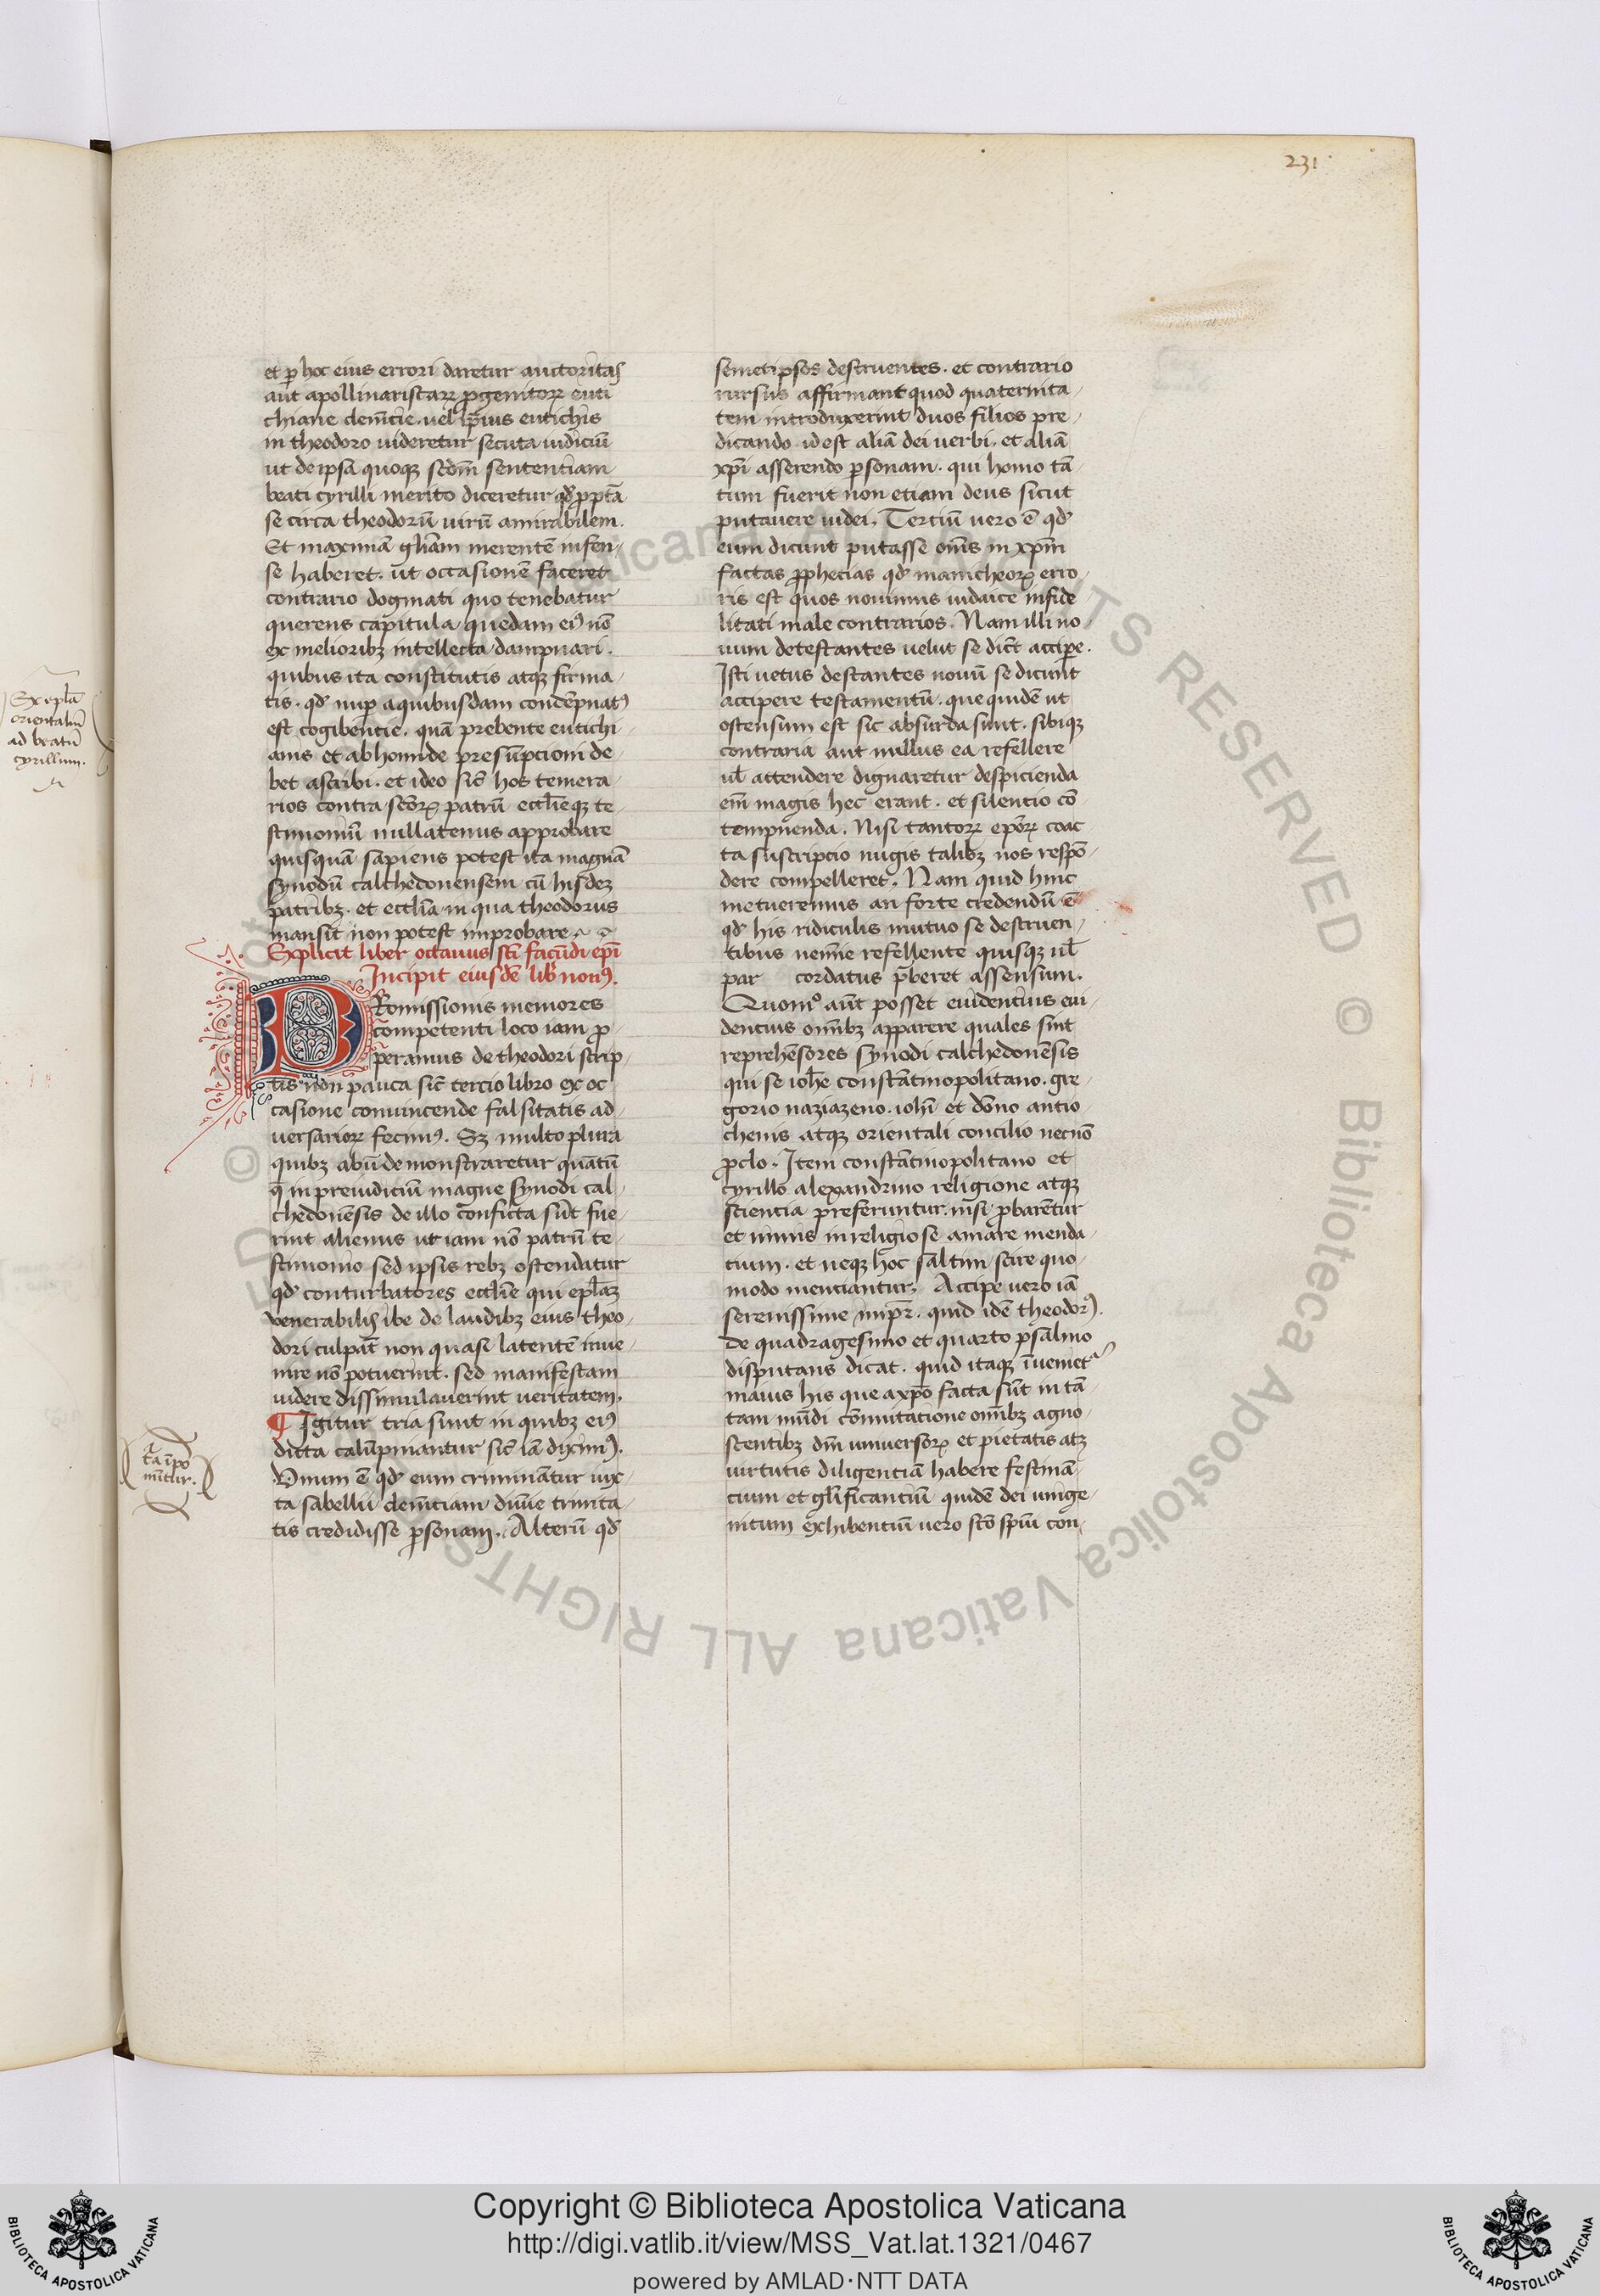 231
et ꝑ hoc eius errori daretur auctoritas
aut apollinaristarꝝ ꝓgenitorꝝ euti
chiane demēcie. uel ipsius eutichis
in theodoro uideretur secuta iudiciū
ut de ipsa quoqꝫ scdm̄ sententiam
beati cyrilli merito diceretur qd̓ ꝓptā
se circa theodorū uirū amirabilem.
Et maximā gl̄iam merentē infen-
se haberet. ut occasionē faceret
contrario dogmati quo tenebatur
querens capitula quedam eiꝰ nō
ex melioribꝫ intellecta dampnari.
quibus ita constitutis atqꝫ firma-
tis. qd̓ nuꝑ a quibusdam condēpnatꝰ
est cogibentie. quā prebente eutichi-
anis et ab homide presūpcioni de-
bet ascribi. et ideo sic̄ hos temera-
rios contra sc̄orꝝ patrū eccl̄ieqꝫ te-
stimoniū nullatenus approbare
quisquā sapiens potest ita magnā
synodū calchedonensem cū hisdeꝫ
patribꝫ. et eccl̄ia in qua theodorus
mansit non potest improbare
Explicit liber octauus sc̄i facūdi ep̄i
Incipit eiusdē lib̓ nonꝰ.
PRomissionis memores
competenti loco iam ꝓ-
peramus de theodori scrip-
tis non pauca sic̄ tercio libro ex oc
casione conuincende falsitatis ad-
uersariorꝝ fecimꝰ. Sꝫ multo plura
quibꝫ abūde monstraretur quātū
q̄ in preiudiciū magne synodi cal-
chedonēsis de illo conficta sūt fue-
rint alienus ut iam nō patrū te-
stimonio sed ipsis rebꝫ ostendatur
qd̓ conturbatores eccl̄ie qui ep̄laꝫ
venerabilis ibe de laudibꝫ eius theo-
dori culpāt non quasi latentē inue-
nire nō potuerint. sed manifestam
uidere dissimulauerint ueritatem.
¶ Igitur tria sunt in quibꝫ eiꝰ
dicta calūpniantur sic̄ iā diximꝰ.
Vnum ē qd̓ eum criminātur iux-
ta sabellii demētiam diuīe trinita-
tis credidisse ꝑsonam. Alterū qd̓
semetipsos destruentes. et contrario
rursus affirmant quod quaternita-
tem introduxerint duos filios pre-
dicando. id est aliā dei uerbi. et aliā
xp̄i asserendo ꝑsonam. qui homo tā-
tum fuerit non etiam deus sicut
putauere iudei. Terciū uero ē qd̓
eum dicunt putasse om̄s in xp̄m
factas ꝓphecias qd̓ manicheorꝝ erro-
ris est quos nouimus iudaice infide
litati male contrarios. Nam illi no-
uum detestantes uelut se dic̄t acciꝑe.
Isti uetus destantes nouū se dicunt
accipere testamentū. que quidē ut
ostensum est sic absurda sunt. sibiqꝫ
contraria aut nullus ea refellere
ul̄ attendere dignaretur despicienda
em̄ magis hec erant. et silencio cō
tempnenda. Nisi tantorꝝ ep̄orꝝ coac
ta suscripcio nugis talibꝫ nos respō-
dere compelleret. Nam quid hinc
metueremus an forte credendū ē
qd̓ his ridiculis mutuo se destruen-
tibus nemīe refellente quisqꝫ ul̄
par cordatus p̄beret assensum.
Quomͦ aūt posset euidentius eui-
dencius om̄ibꝫ apparere quales sint
reprehēsores synodi calchedonēsis
qui se ioh̄e constātinopolitano. gre-
gorio naziazeno. ioh̄i et dōno antio-
chenis atqꝫ orientali concilio necnō
ꝓclo. Item constātinopolitano et
cyrillo alexandrino religione atqꝫ
sciencia preferuntur. nisi ꝓbarētur
et nimis inreligiose amare menda-
cium. et neqꝫ hoc saltim scire quo-
modo menciantur. Accipe uero iā
serenissime imp̄r. quid idē theodorꝰ.
de quadragesimo et quarto psalmo
disputans dicat. quid itaqꝫ īuenietᷣ
maius his que a xp̄o facta sūt in tā-
tam mūdi cōmutacione om̄ibꝫ agno-
scentibꝫ dm̄ uniuersorꝝ et pietatis atqꝫ
uirtutis diligentiā habere festinā-
cium et gl̄ificantiū quidē dei unige-
nitum exhibentiū uero sc̄o sp̄iū con-
Ex ep̄la
orientaliū
ad beatū
cyrillum.
Copyright © Biblioteca Apostolica Vaticana
http://digi.vatlib.it/view/MSS_Vat.lat.1321/0467
powered by AMLAD·NTT DATA
BIBLIOTECA APOSTOLICA VATICANA
BIBLIOTECA APOSTOLICA VATICANA